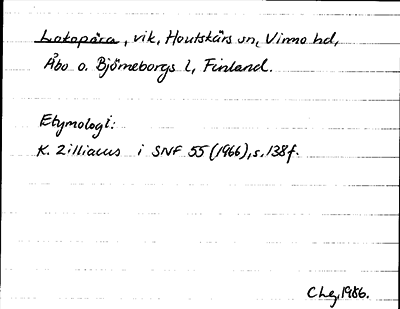 Lokopära, vik, Houtskärs sn, Virmo hd,
Åbo o. Björneborgs l, Finland.
Etymologi:
K. Zilliacus i SNF 55 (1966), s. 138 f.
CLg, 1986.